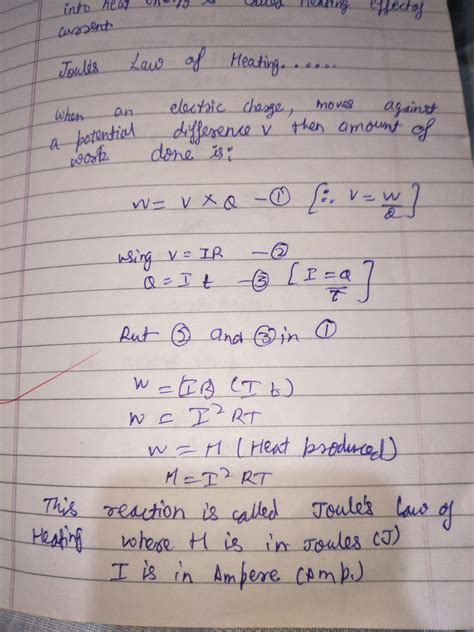 into heat energy is called Heating effect of
current
Joule's Law of Heating......
When an electric charge, moves against
a potential difference V then amount of
work done is:
W = V × Q — ① [∵ V = W/Q]
using V = IR — ②
Q = I t — ③ [I = Q/t]
Put ③ and ② in ①
W = (IR) (I t)
W = I² RT
W = H (Heat produced)
H = I² RT
This reaction is called Joule's law of
Heating where H is in Joules (J)
I is in Ampere (Amp.)